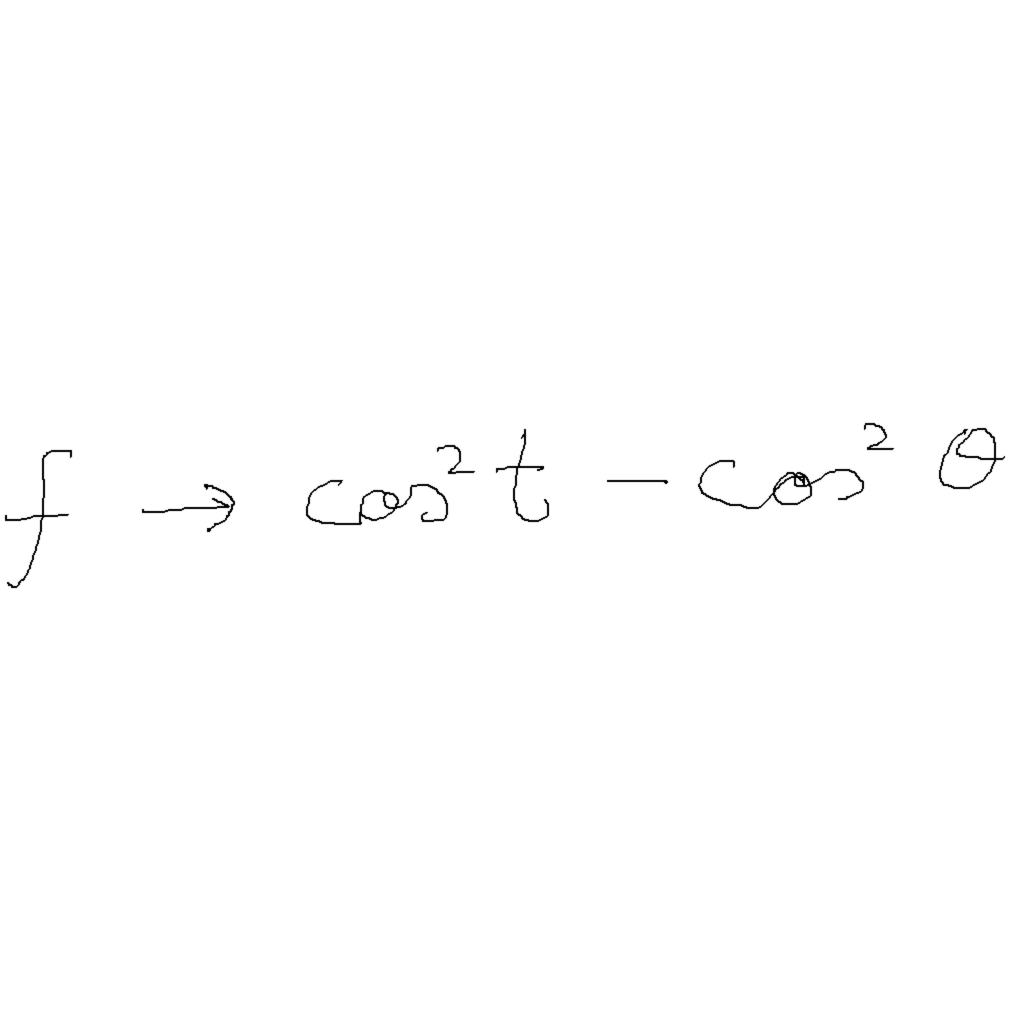 f → cos² t - cos² θ